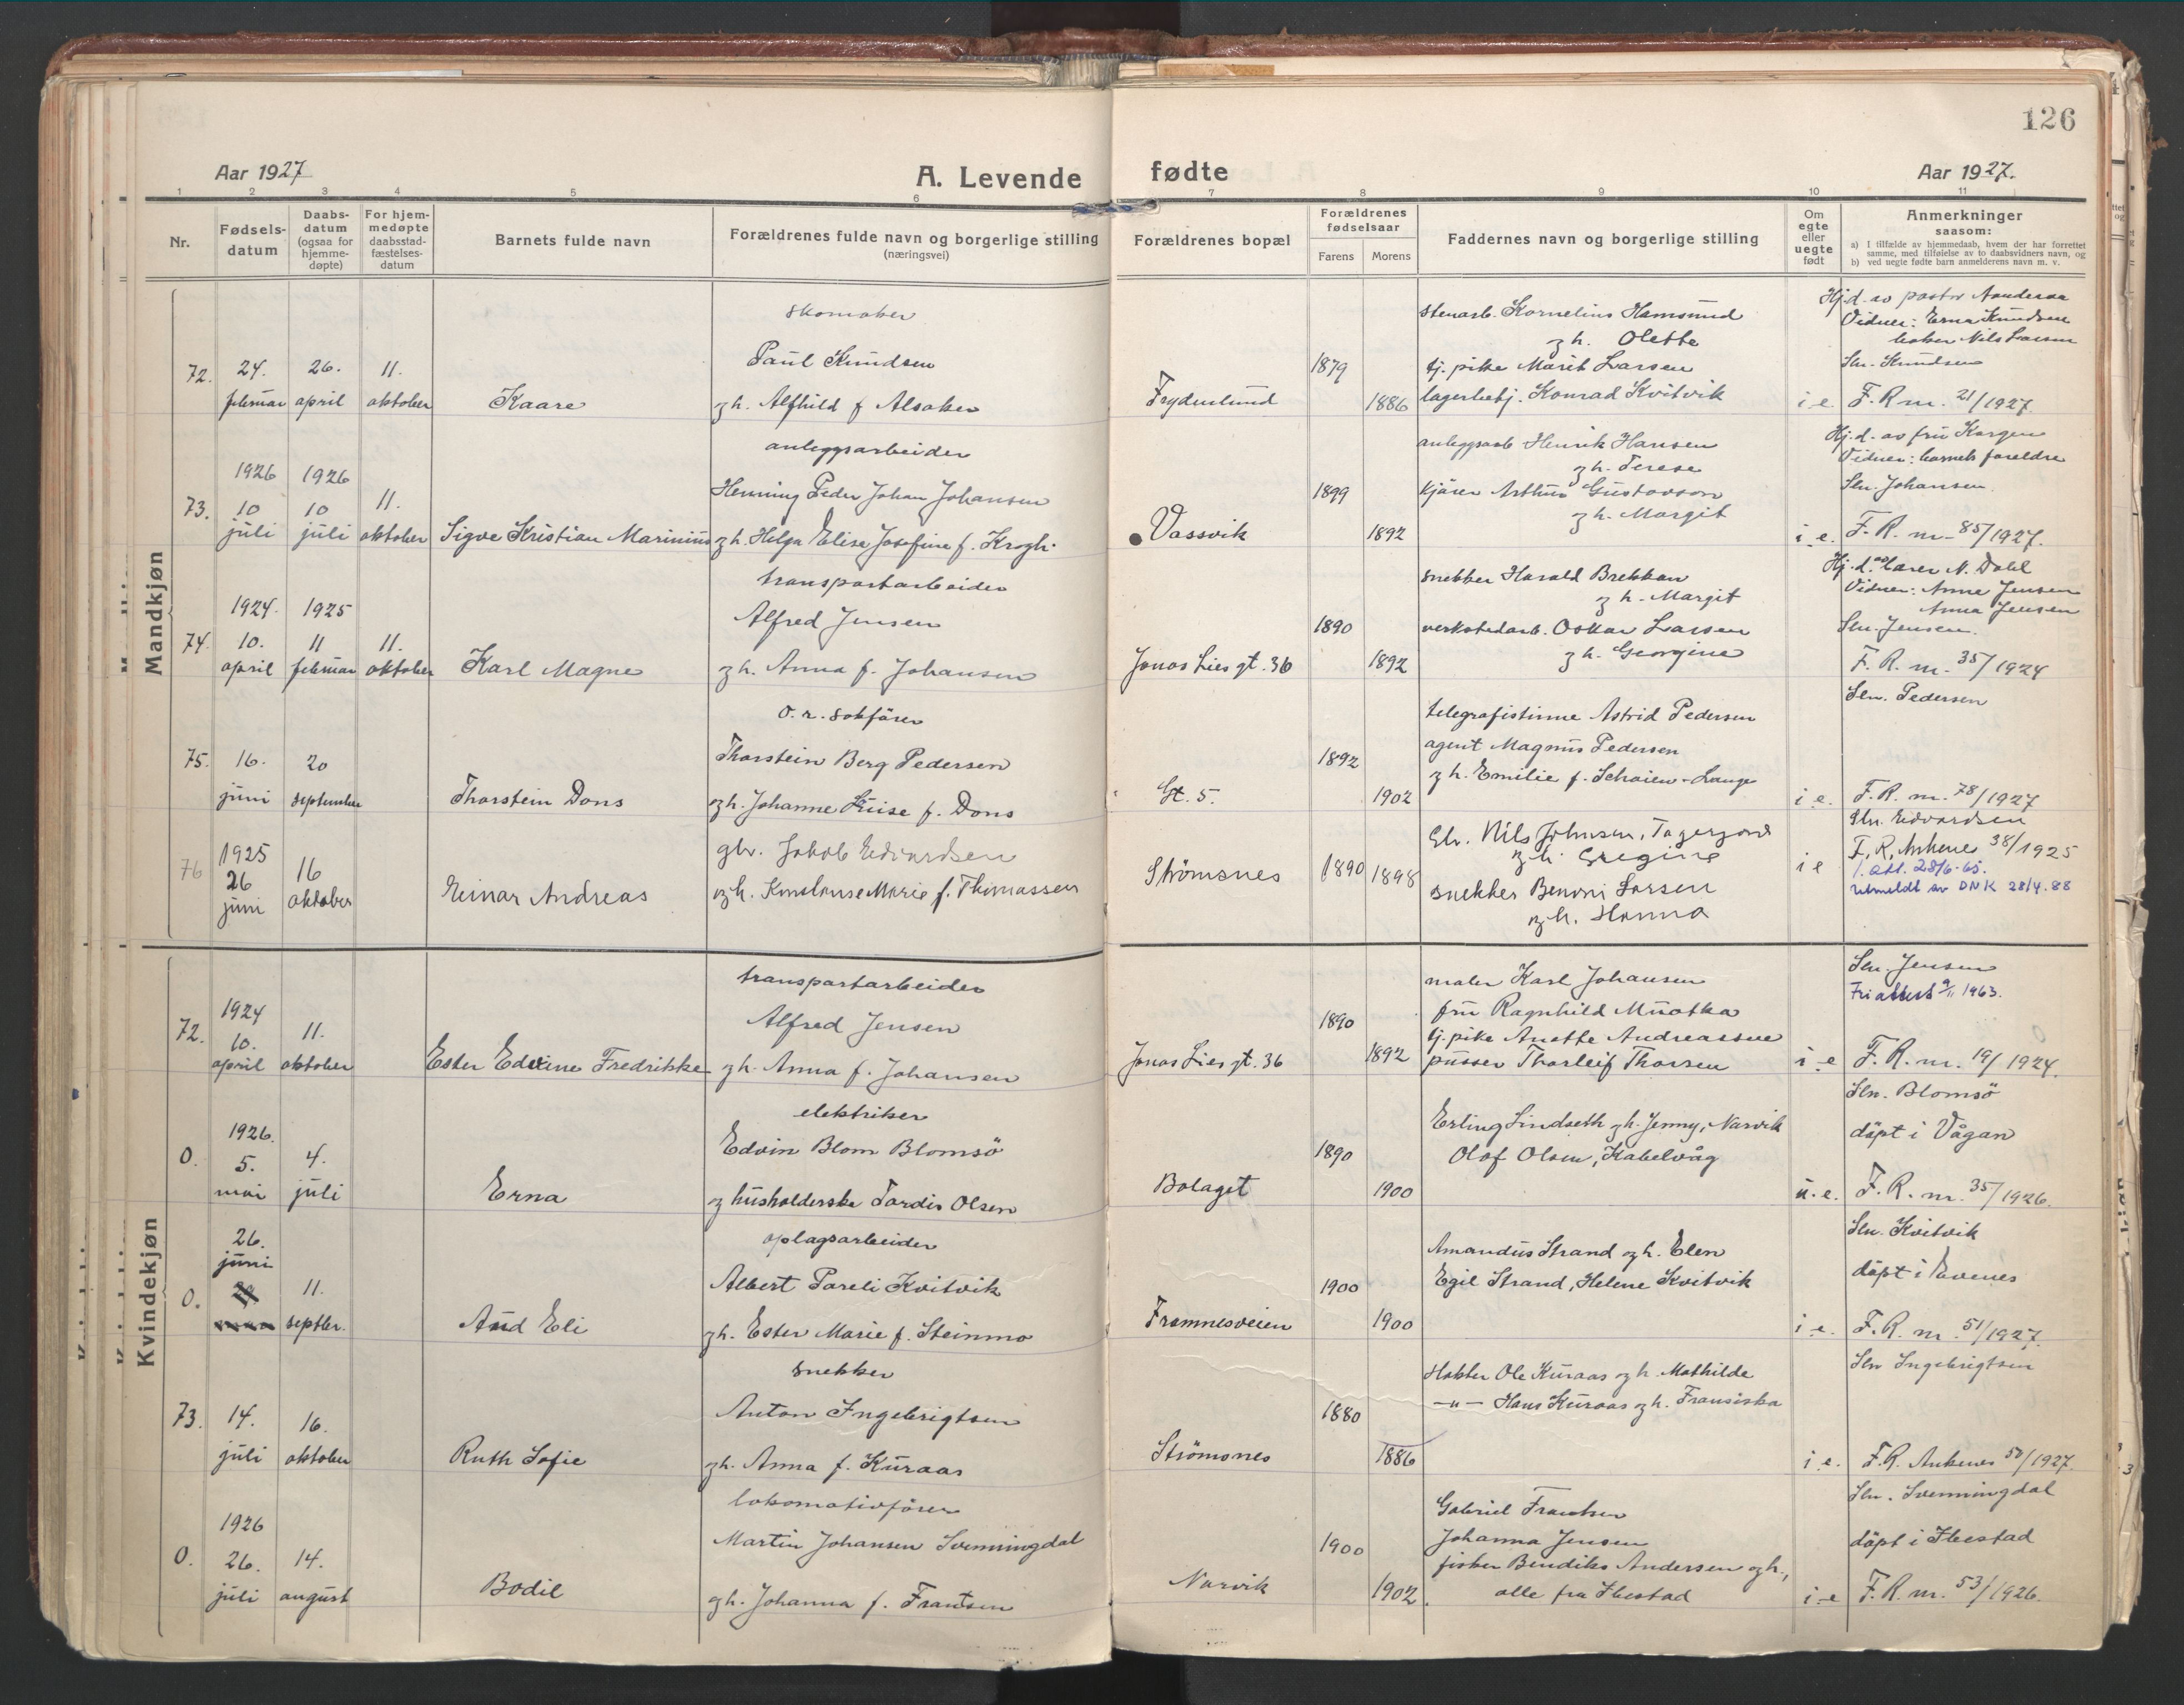 126
Aar 1927
A. Levende
fødte
Aar 1927.
1 2 3 4 5 6 7 8 9 10 11
Nr.
Fødsels-
datum
Daabs-
datum
(ogsaa for
hjemme-
døpte)
For hjem-
medøpte
daabsstad-
fæstelses-
datum
Barnets fulde navn
Forældrenes fulde navn og borgerlige stilling
(næringsvei)
Forældrenes bopæl
Forældrenes
fødselsaar
Farens
Morens
Faddernes navn og borgerlige stilling
Om
egte
eller
uegte
født
Anmerkninger
saasom:
a) I tilfælde av hjemmedaab, hvem der har forrettet
samme, med tilføielse av to daabsvidners navn, og
b) ved uegte fødte barn anmelderens navn m. v.
Mandkjøn
72.
24.
februar
26.
april
11.
oktober
Kaare
skomaker
Paul Knudsen
og h. Alfhild f. Alsaker
Frydenlund
1879
1886
stenarb. Kornelius Hamsund
og h. Olette
tj. pike Marit Larsen
lagerbetj. Konrad Kvitvik
i e.
Hj.d. av pastor Aandersaa
Vidner: Erna Knudsen
baker Nils Larsen
Sln. Knudsen
F.R. nr. 21/1927.
73.
1926
10
juli
1926
10
juli
11.
oktober
Sigve Kristian Marinius
anleggsarbeider
Henning Peder Johan Johansen
og h. Helga Elise Josefine f. Krogh.
Vassvik
1899
1892
anleggsarb Henrik Hansen
og h. Terese
kjører Arthur Gustavson
og h. Margit
i.e.
Hj.d. av fru Korgen
Vidner: barnets foreldre
Sln. Johansen.
F.R. nr. 85/1927.
74.
1924.
10.
april
1925
11
februar
11.
oktober
Karl Magne
transportarbeider
Alfred Jensen
og h. Anna f. Johansen
Jonas Lies gt. 36
1890
1892
snekker Harald Brekkan
og h. Margit
verkstedarb. Oskar Larsen
og h. Georgine
Hj.d. av lærer N. Dahl
Vidner: Anne Jensen
Anna Jensen
Sln. Jensen.
F.R. nr. 35/1924
75.
16.
juni
20
september
Thorstein Dons
o. r. sakfører
Thorstein Berg Pedersen
og h. Johanne Luise f. Dons
Gt. 5.
1892
1902
telegrafistinne Astrid Pedersen
agent Magnus Pedersen
og h. Emilie f. Schøien-Lange
i e.
Sln. Pedersen
F.R. nr. 78/1927
76
1925
26
juni
16
oktober
Einar Andreas
gbr. Jakob Edvardsen
og h. Konstanse Marie f. Thomassen
Strømsnes
1890
1898
Gbr. Nils Johnsen,
og h. Gregine
snekker Benoni Larsen
og h. Hanna
i e
Sln. Edvardsen
F.R. Ankenes 38/1925
1. att. 28/6-65.
utmeldt av DNK 28/4.88
Kvindekjøn
72.
1924
10.
april
11.
oktober
Ester Edvine Fredrikke
transportarbeider
Alfred Jensen
og h. Anna f. Johansen
Jonas Lies gt. 36
1890
1892
maler Karl Johansen
fru Ragnhild Muotka
tj. pike Anette Andreassen
pusser Thorleif Thorsen
i e
Sln. Jensen
Friattest 9/11 1963.
F.R. nr. 19/1924.
0.
1926.
5.
mai
4.
juli
Erna
elektriker
Edvin Blom Blomsø
og husholderske Tordis Olsen
Bolaget
1890
1900
Erling Lindseth og h. Jenny, Narvik
Olaf Olsen, Kabelvåg
u.e.
Sln. Blomsø
døpt i Vågan
F.R. nr. 35/1926.
0.
26.
juni
11.
septbr.
Aud Eli
oplagsarbeider
Albert Pareli Kvitvik
og h. Ester Marie f. Steinmo
Framnesveien
1900
1900
Amandus Strand og h. Elen
Egil Strand, Helene Kvitvik
i e.
Sln. Kvitvik
døpt i Evenes
F.R. nr. 51/1927.
73.
14.
juli
16.
oktober
Ruth Sofie
snekker
Anton Ingebrigtsen
og h. Anna f. Kuraas
Strømsnes
1880
1886
Stokker Ole Kuraas og h. Mathilde
-"- Hans Kuraas og h. Fransiska
i e.
Sln Ingebrigtsen
F.R. Ankenes 50/1927.
0.
1926
26.
juli
14.
august
Bodil
lokomotivfører
Martin Johansen Svenningdal
og h. Johanna f. Frantsen
Narvik
1900
1902.
Gabriel Frantsen
Johanna Jensen
fisker Bendiks Andersen og h.,
alle fra Ibestad
i-e
Sln. Svenningdal
døpt i Ibestad
F.R. nr. 53/1926.